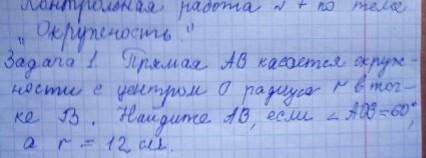 Контрольная работа по теме
"Окружность"
Задача 1. Прямая АВ касается окруж-
ности с центром О радиуса r в точ-
ке В. Найдите АВ, если ∠AOB=60°,
а r = 12 см.